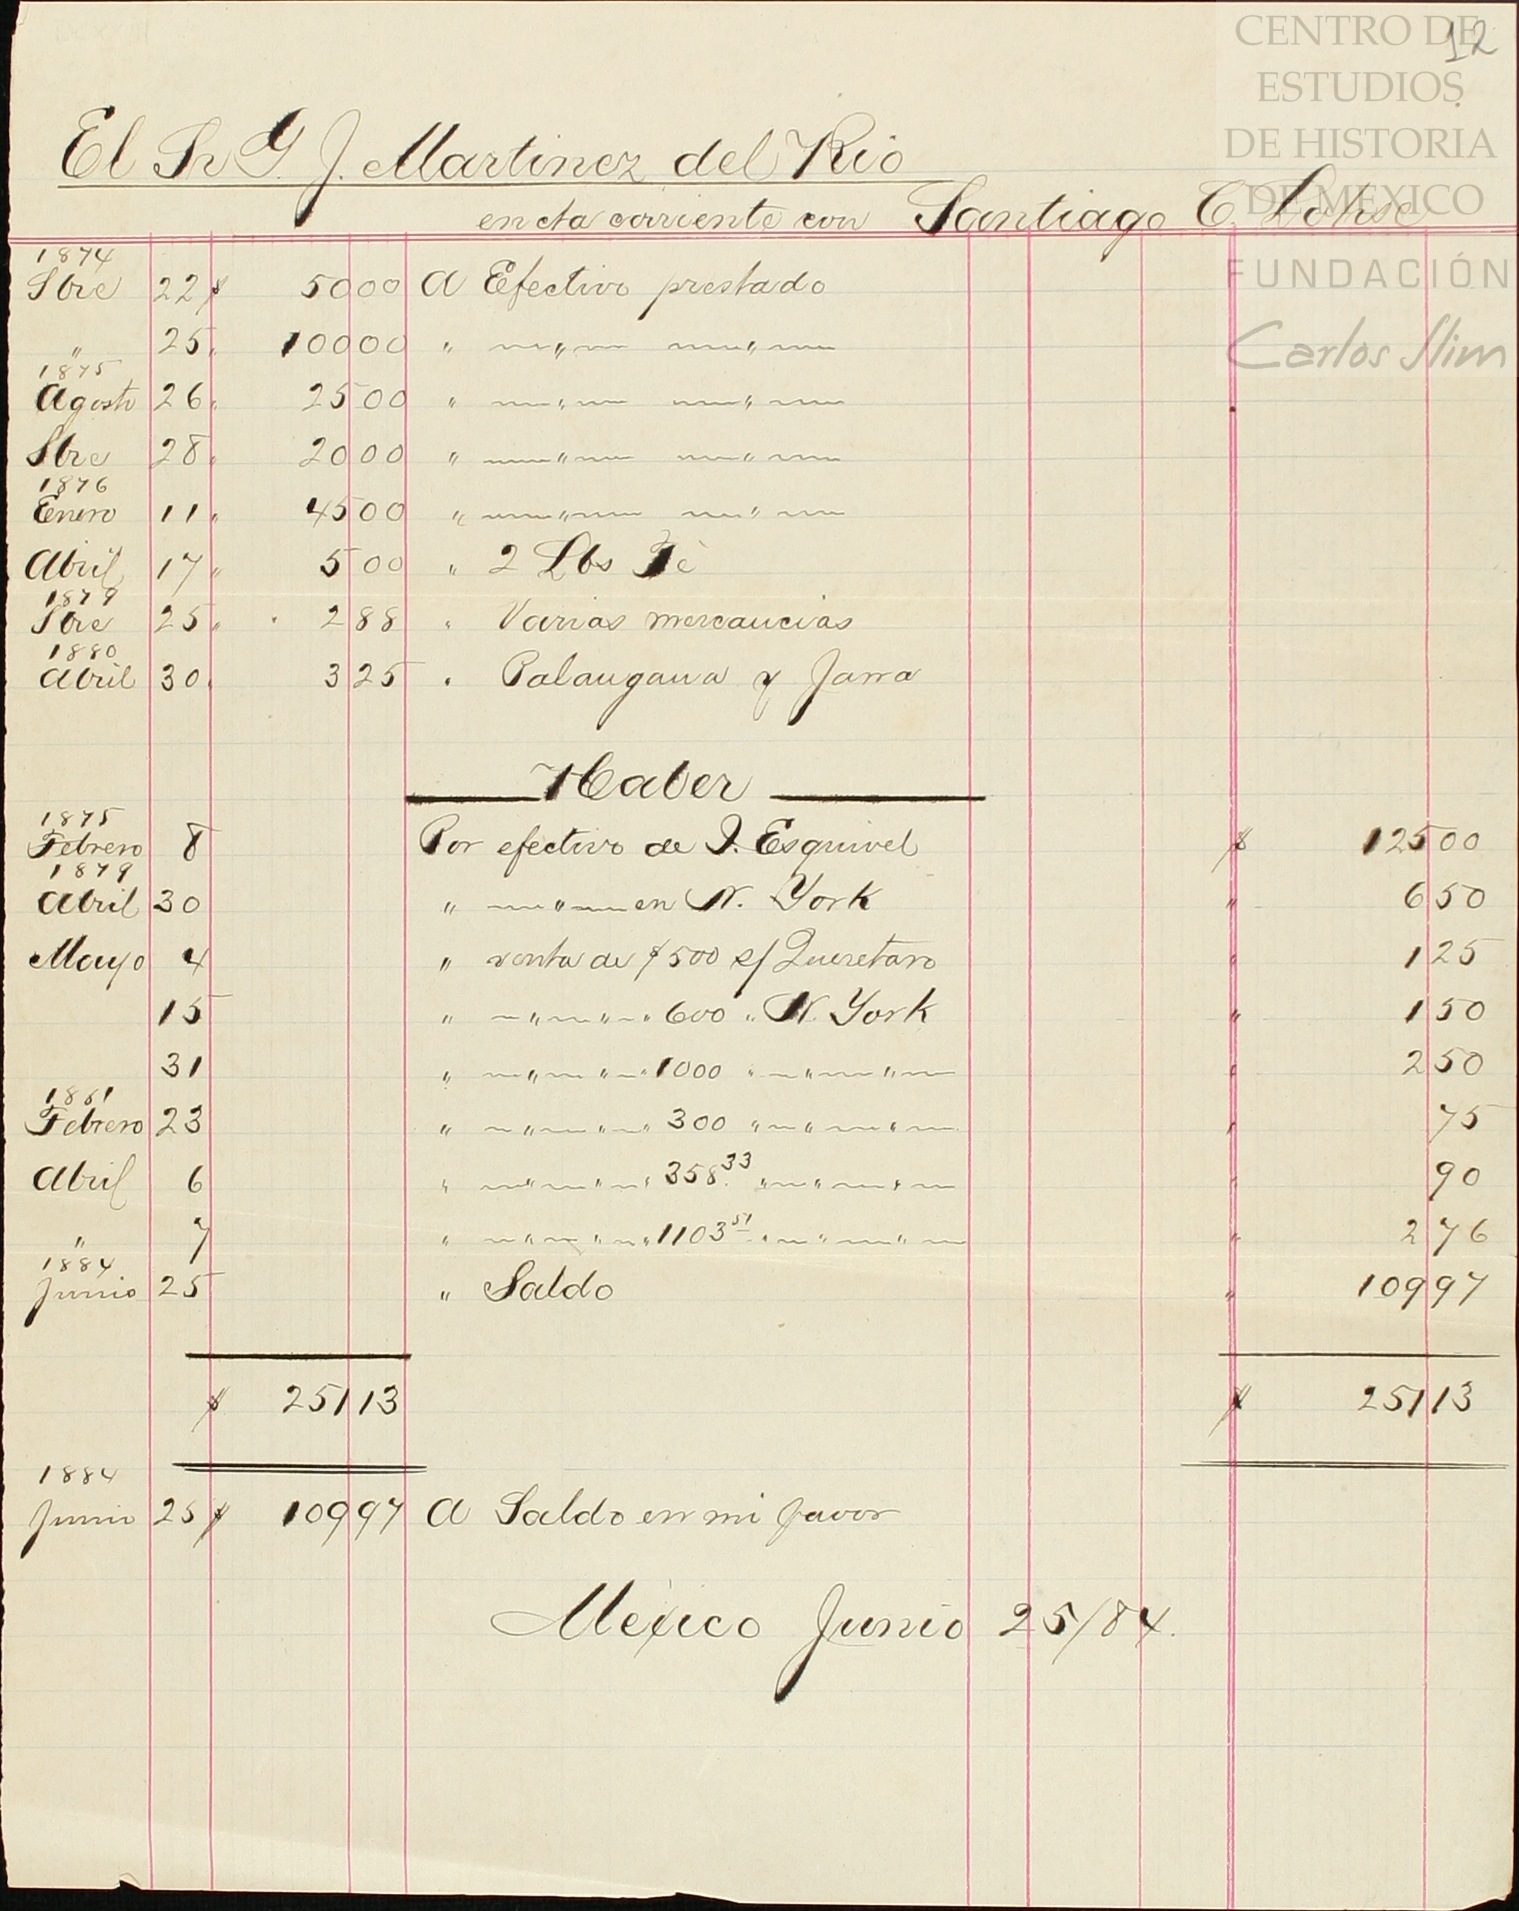 12
CENTRO DE
ESTUDIOS
DE HISTORIA
DE MEXICO
FUNDACIÓN
Carlos Slim
El Sr G. J. Martinez del Rio
en cta corriente con Santiago C. Lohse
1874
Sbre 22 $ 50 00 A Efectivo prestado
" 25 " 100 00 " " "
1875
Agosto 26 " 25 00 " " "
Sbre 28 " 20 00 " " "
1876
Enero 11 " 45 00 " " "
Abril 17 " 5 00 " 2 Lbs Té
1879
Sbre 25 " 2 88 " Varias mercancias
1880
Abril 30 " 3 25 " Palangana y Jarra
Haber
1875
Febrero 8 Por efectivo de J. Esquivel $ 125 00
1879
Abril 30 " " en N. York " 6 50
Mayo 4 " venta de $500 s/ Queretaro " 1 25
15 " " " " 600 " N. York " 1 50
31 " " " " 1000 " " " " 2 50
1881
Febrero 23 " " " " 300 " " " " 75
Abril 6 " " " " 358.33 " " " " 90
" 7 " " " " 1103.51 " " " " 2 76
1884
Junio 25 " Saldo " 109 97
$ 251 13 $ 251 13
1884
Junio 25 $ 109 97 A Saldo en mi favor
Mexico Junio 25/84.